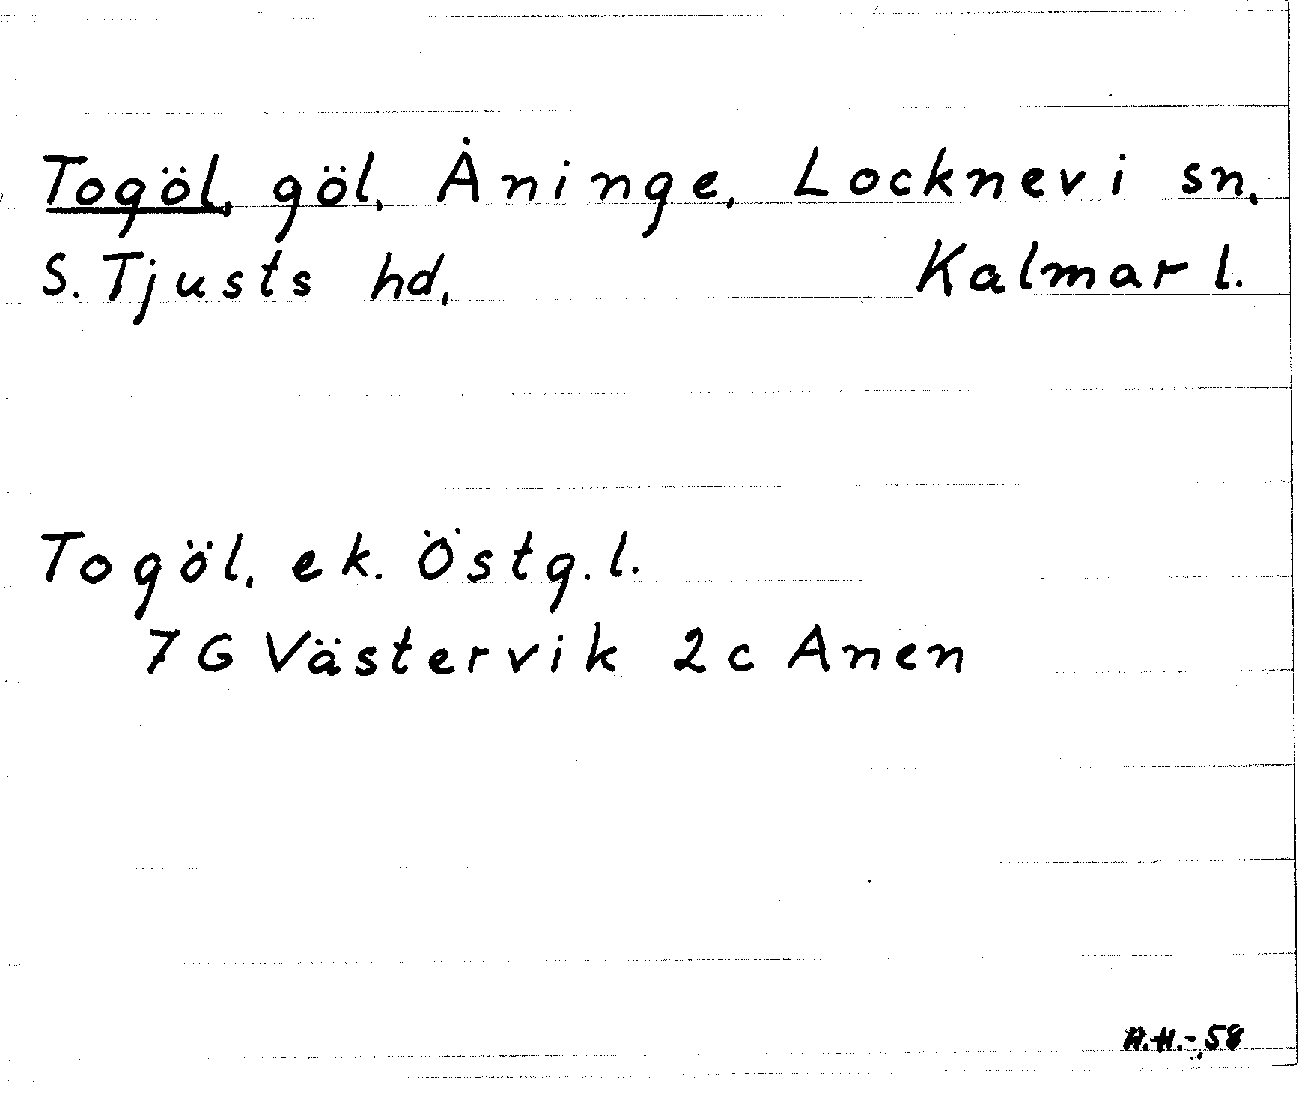 Togöl, göl, Åninge, Locknevi sn,
S. Tjusts hd, Kalmar l.
Togöl, ek. Östg. l.
7 G Västervik 2 c Anen
A.H.-58